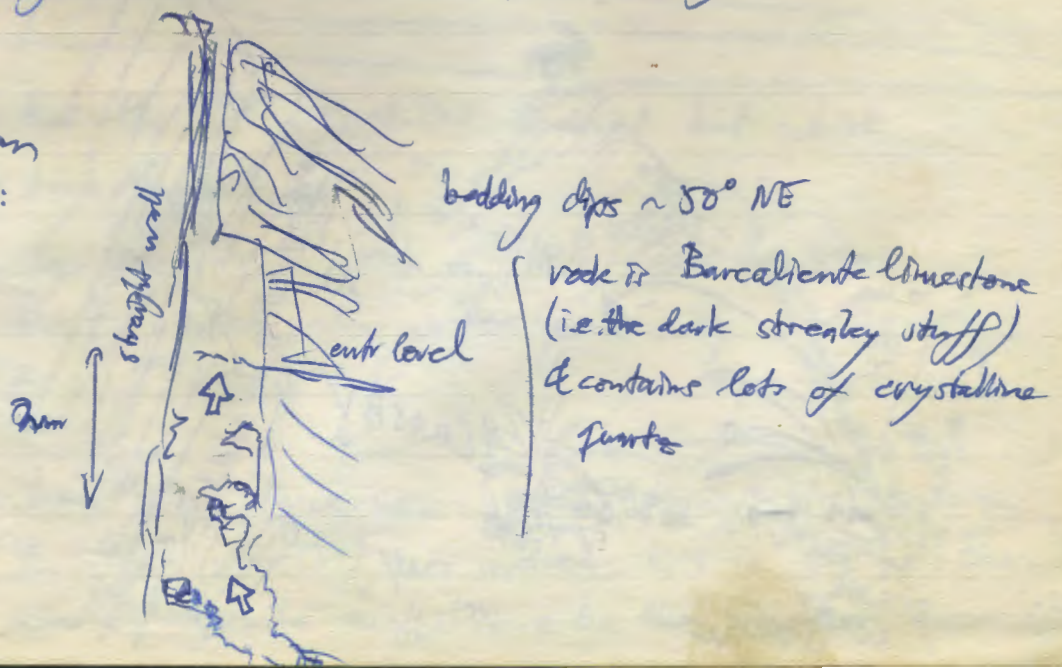 straight wall
bedding dips ~ 50° NE
rock is Barcaliente limestone
(i.e. the dark streaky stuff)
& contains lots of crystalline
quartz
entr level